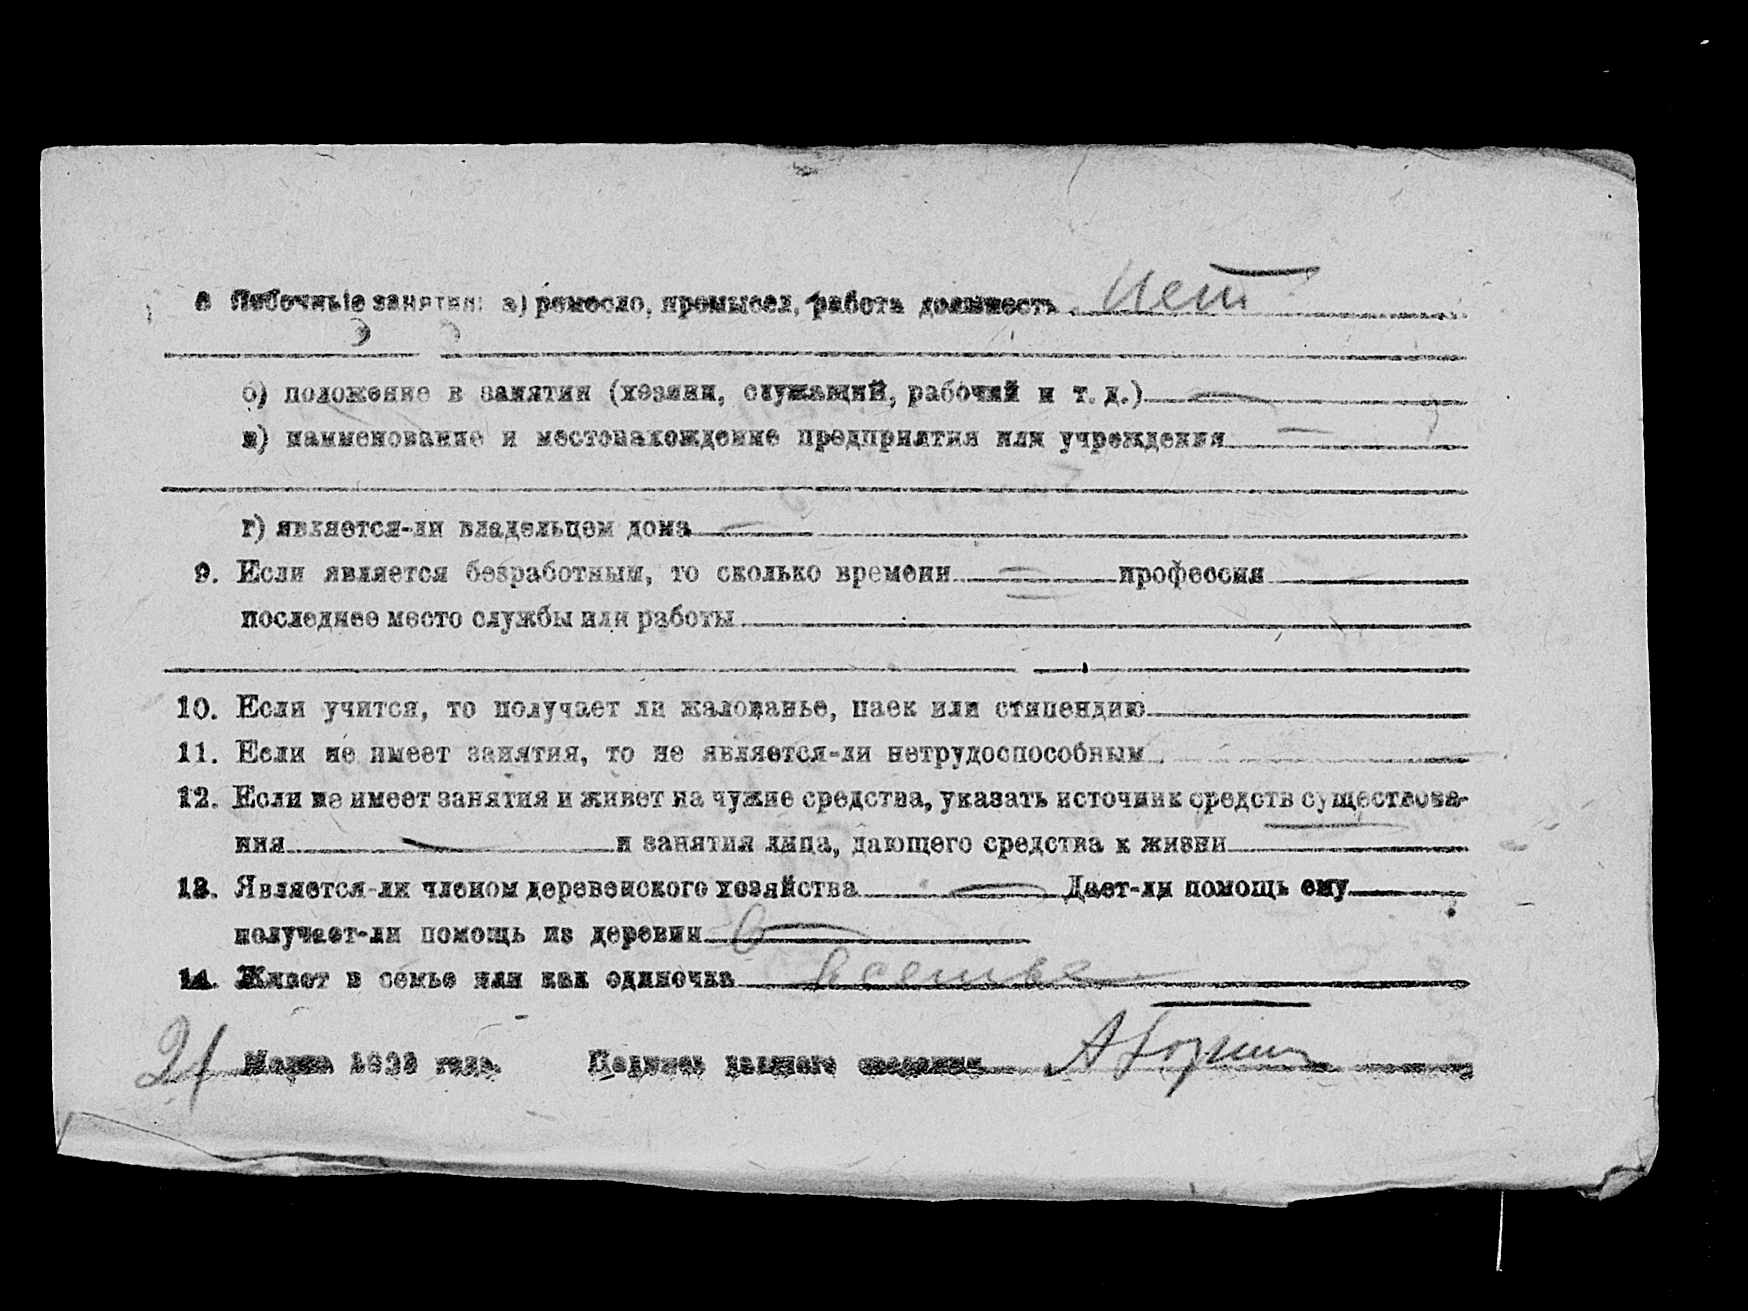 8 Побочные занятия: а) ремесло, промысел, работа должность Нет
б) положение в занятии (хозяин, служащий, рабочий и т. д.)
в) наименование и местонахождение предприятия или учреждения
г) является-ли владельцем дома
9. Если является безработным, то сколько времени профессия
последнее место службы или работы
10. Если учится, то получает ли жалованье, паек или стипендию
11. Если не имеет занятия, то не является-ли нетрудоспособным
12. Если не имеет занятия и живет на чужие средства, указать источник средств существова-
ния и занятия лица, дающего средства к жизни
13. Является-ли членом деревенского хозяйства Дает-ли помощь ему
получает-ли помощь из деревни
14. Живет в семье или как одиночка в семье
21 Марта 1923 года. Подпись давшего сведения